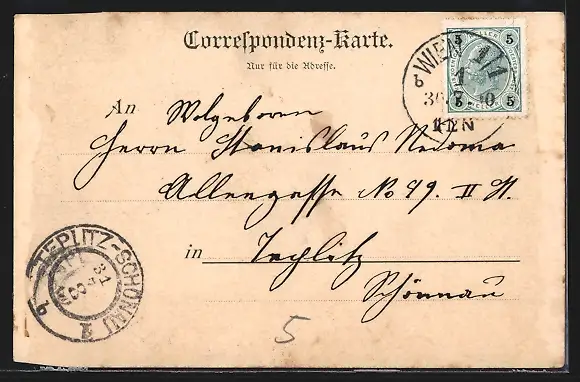 Correspondenz-Karte.
Nur für die Adresse.
WIEN 1/1
5 5
5 5
30 7 00
WIEN
An Wolgeboren
Herrn Stanislaus Nedoma
Alleegasse No 49. II St.
in Teplitz
Schönau
TEPLITZ-SCHÖNAU 1
31
5